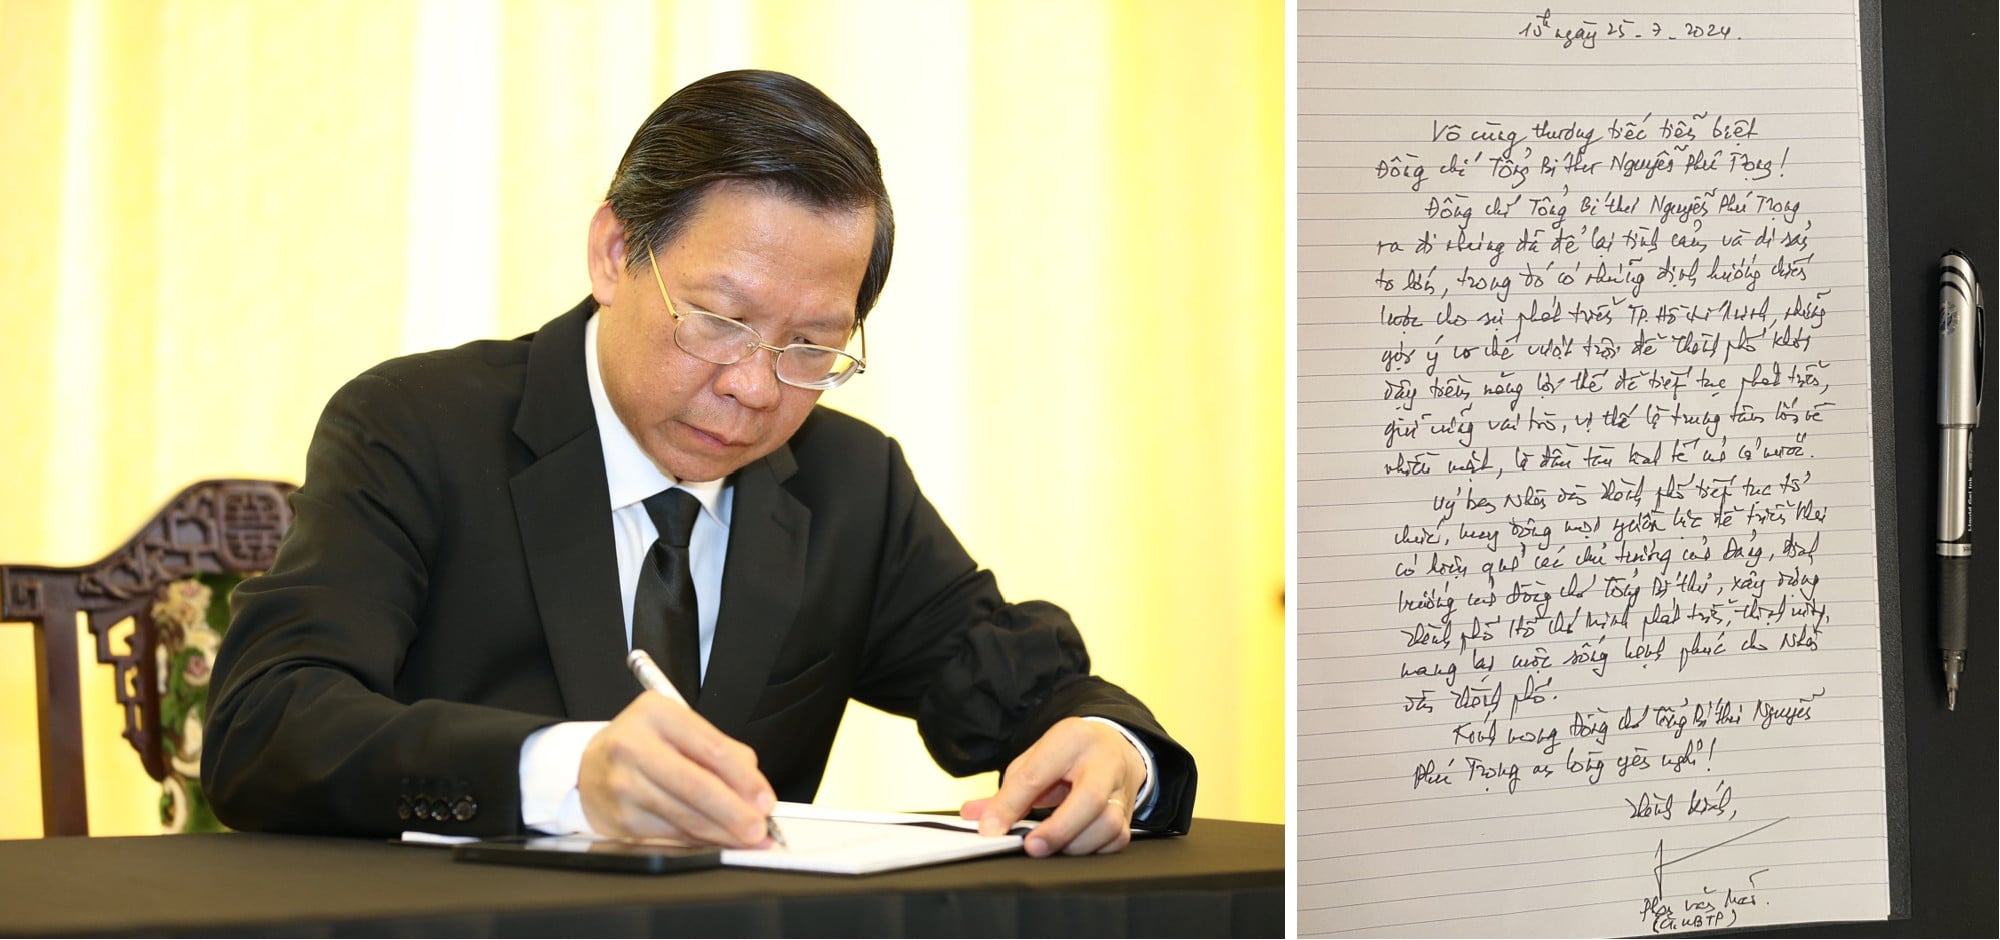 15h ngày 25-7-2024.
Vô cùng thương tiếc tiễn biệt
Đồng chí Tổng Bí thư Nguyễn Phú Trọng!
Đồng chí Tổng Bí thư Nguyễn Phú Trọng
ra đi nhưng đã để lại tình cảm và di sản
to lớn, trong đó có những định hướng chiến
lược cho sự phát triển TP. Hồ Chí Minh, những
gợi ý cơ chế vượt trội để Thành phố khơi
dậy tiềm năng lợi thế để tiếp tục phát triển,
giữ vững vai trò, vị thế là trung tâm lớn về
nhiều mặt, là đầu tàu kinh tế của cả nước.
Uỷ ban Nhân dân Thành phố tiếp tục tổ
chức, huy động mọi nguồn lực để triển khai
có hiệu quả các chủ trương của Đảng, định
hướng của Đồng chí Tổng Bí thư, xây dựng
Thành phố Hồ Chí Minh phát triển, thịnh vượng,
mang lại cuộc sống hạnh phúc cho Nhân
dân Thành phố.
Kính mong Đồng chí Tổng Bí thư Nguyễn
Phú Trọng an lòng yên nghỉ!
Thành kính,
Phan Văn Mãi.
(CT. UBTP)
Liquid Gel Ink